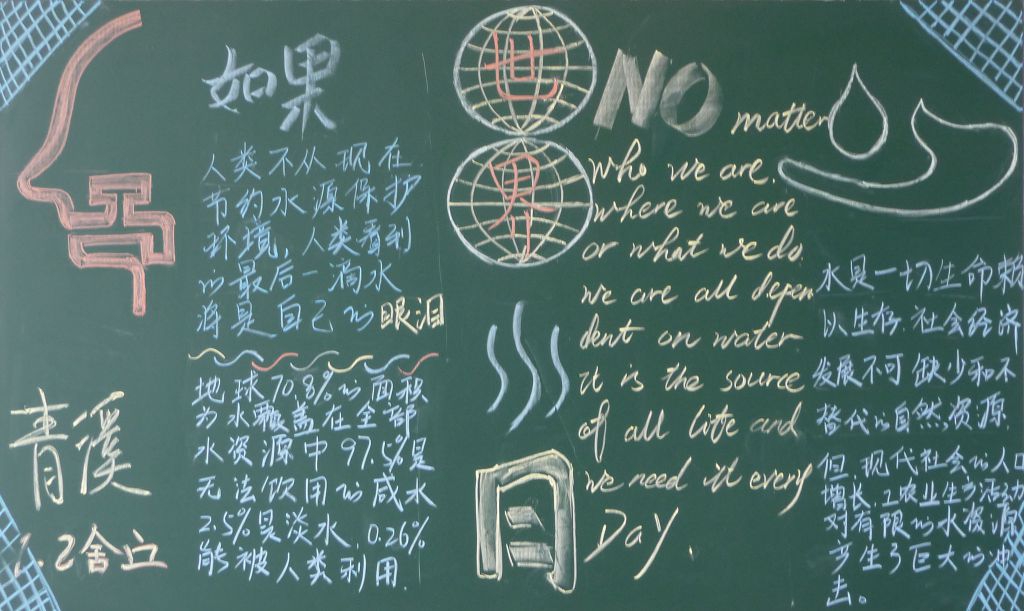 如果
人类不从现在
节约水源保护
环境,人类看到
的最后一滴水
将是自己的眼泪
地球70.8%的面积
为水覆盖在全部
水资源中97.5%是
无法饮用的咸水
2.5%是淡水.0.26%
能被人类利用.
青溪
1.2舍立
世
界
日
NO matter
who we are.
where we are
or what we do.
we are all depen
dent on water
it is the source
of all life and
we need it every
Day.
水是一切生命赖
以生存.社会经济
发展不可缺少和不
替代的自然资源.
但,现代社会的人口
增长.工农业生产活动
对有限的水资源
产生了巨大的冲
击。